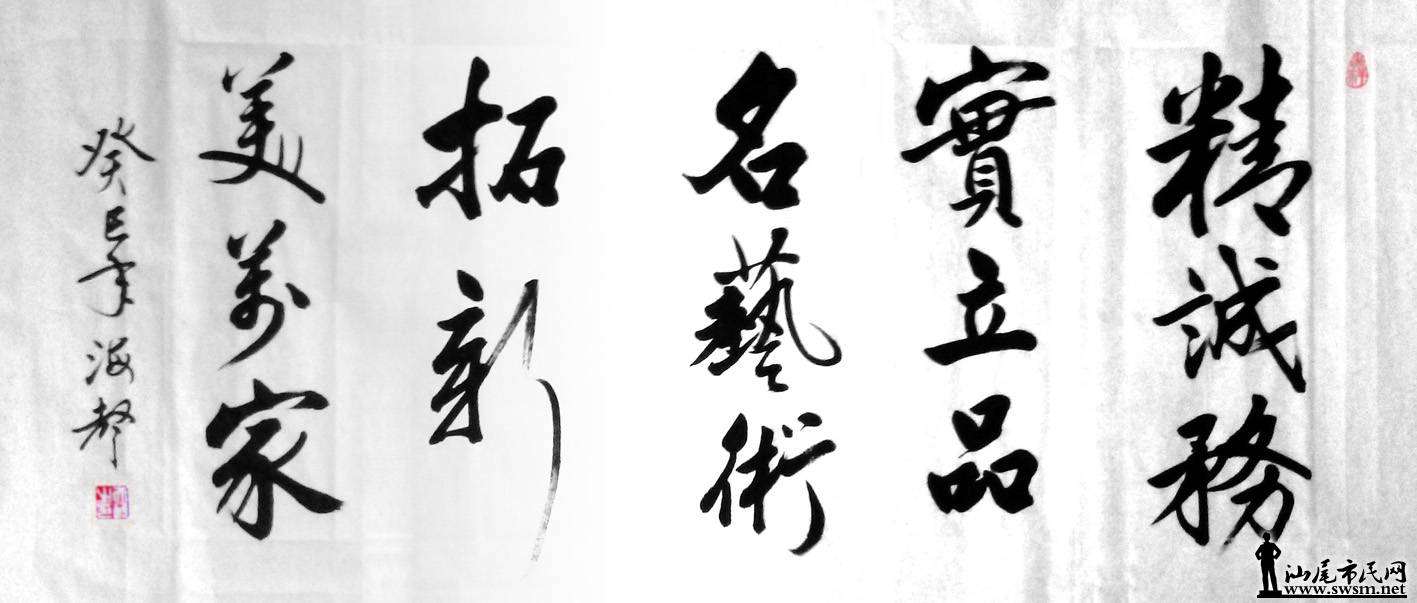 精誠務
實立品
名藝術
拓新
美萬家
癸巳年海都
汕尾市民网
www.swsm.net